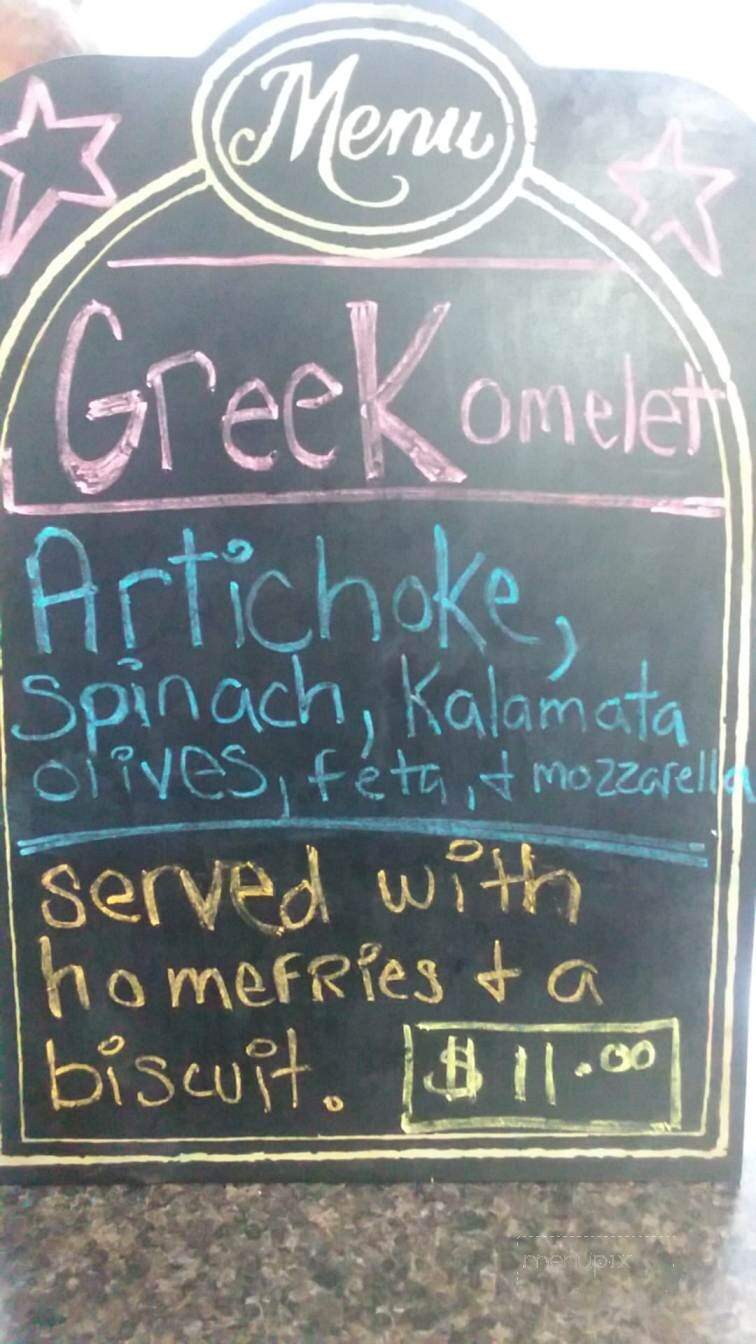 Menu
GreeK omelett
Artichoke,
spinach, Kalamata
olives, feta, + mozzarella
served with
homeFRies + a
biscuit. $11.00
menupix